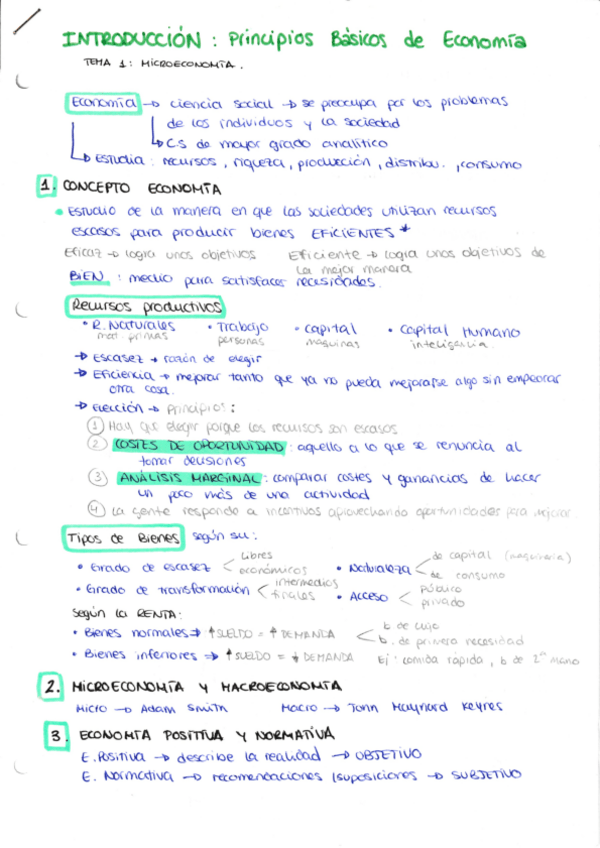 INTRODUCCIÓN : Principios Básicos de Economía
TEMA 1: MICROECONOMÍA.
Economía → ciencia social → se preocupa por los problemas
de los individuos y la sociedad
↳ Cs de mayor grado analítico
↳ Estudia : recursos, riqueza, producción, distribu., consumo
1. CONCEPTO ECONOMÍA
• ESTUDIO de la manera en que las sociedades utilizan recursos
escasos para producir bienes EFICIENTES *
Eficaz → logra unos objetivos Eficiente → logra unos objetivos de
la mejor manera
BIEN : medio para satisfacer necesidades.
Recursos productivos
• R. Naturales • Trabajo • Capital • Capital Humano
mat. primas personas maquinas inteligencia
→ Escasez → razón de elegir
→ Eficiencia → mejorar tanto que ya no pueda mejorarse algo sin empeorar
otra cosa.
→ Elección → Principios :
1 Hay que elegir porque los recursos son escasos
2 COSTES DE OPORTUNIDAD : aquello a lo que se renuncia al
tomar decisiones
3 ANÁLISIS MARGINAL : comparar costes y ganancias de hacer
un poco más de una actividad
4 La gente responde a incentivos aprovechando oportunidades para mejorar
Tipos de Bienes según su :
• Grado de escasez < Libres económicos • Naturaleza < de capital (maquinaria) de consumo
• Grado de transformación < intermedios finales • Acceso < público privado
Según la RENTA:
• Bienes normales → ↑ SUELDO = ↑ DEMANDA < b de lujo b. de primera necesidad
• Bienes inferiores → ↑ SUELDO = ↓ DEMANDA Ej : comida rápida, b de 2ª mano
2. MICROECONOMÍA Y MACROECONOMÍA
Micro → Adam Smith Macro → Jonn Maynard Keynes
3. ECONOMÍA POSITIVA Y NORMATIVA
E. Positiva → describe la realidad → OBJETIVO
E. Normativa → recomendaciones /suposiciones → SUBJETIVO